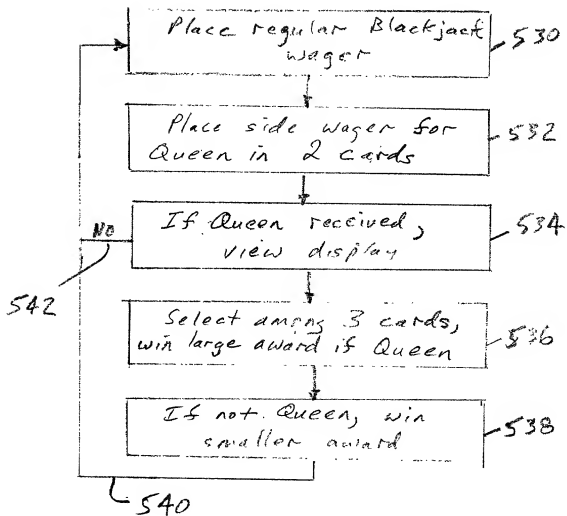 Place regular Blackjack
wager
530
Place side wager for
Queen in 2 cards
532
If Queen received,
view display
534
NO
542
Select among 3 cards,
win large award if Queen
536
If not Queen, win
smaller award
538
540